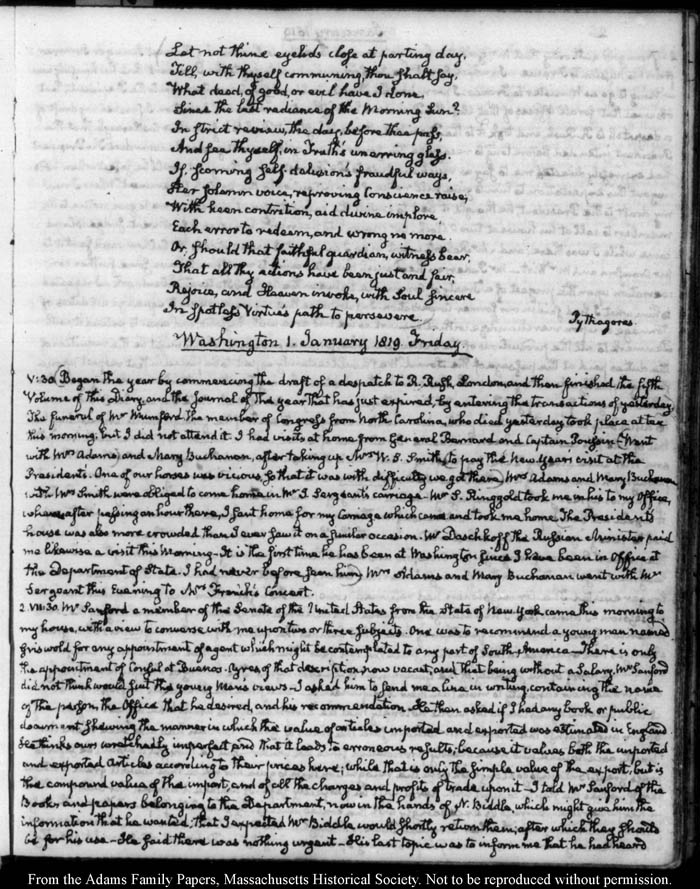 Let not thine eyelids close at parting day,
Till, with thyself communing, thou shalt say,
What deed, of good, or evil have I done,
Since the last radiance of the Morning Sun?
In strict review, the day, before thee pass,
And see thyself, in Truth's unerring glass.
If, scorning self-delusion's fraudful ways,
Her solemn voice, reproving Conscience raise,
With keen contrition, aid divine implore
Each error to redeem, and wrong no more
Or, should that faithful guardian, witness bear,
That all thy actions have been just and fair,
Rejoice, and Heaven invoke, with Soul sincere
In spotless Virtue's path to persevere
Pythagoras.
Washington 1. January 1819. Friday
V:30. Began the year by commencing the draft of a despatch to R. Rush, London, and then finished the fifth
Volume of this Diary, and the Journal of the year that has just expired, by entering the transactions of yesterday.
The funeral of Mr Mumford the member of Congress from North Carolina, who died yesterday took place at ten
this morning, but I did not attend it. I had visits at home from General Bernard and Captain Poussin. Went
with Mrs Adams and Mary Buchanan, after taking up Mrs W. S. Smith, to pay the New Year's visit at the
President's. One of our horses was vicious, so that it was with difficulty we got there, Mrs Adams and Mary Buchanan
with Mrs Smith were obliged to come home in Mr J. Sergeant's carriage. Mr S. Ringgold took me in his to my Office,
where after passing an hour there, I sent home for my Carriage which came and took me home. The President's
house was also more crowded than I ever saw it on a similar occasion. Mr Daschkoff the Russian Minister paid
me likewise a visit this Morning. It is the first time he has been at Washington since I have been in Office at
the Department of State. I had never before seen him. Mrs Adams and Mary Buchanan went with Mr
Sergeant this Evening to Mrs French's Concert.
2. VII:30. Mr Sanford a member of the Senate of the United States from the State of New York came this morning to
my house, with a view to converse with me upon two or three subjects. One was to recommend a young man named
Griswold for any appointment of agent which might be contemplated to any part of South-America. There is only
the appointment of Consul at Buenos-Ayres of that description, now vacant, and that being without a Salary, Mr Sanford
did not think would suit the young Man's views. I asked him to send me a line in writing, containing the name
of the person, the Office that he desired, and his recommendation. He then asked if I had any book or public
document shewing the manner in which the value of articles imported and exported was estimated in England
He thinks ours wretchedly imperfect and that it leads to erroneous results; because it values both the imported
and exported Articles according to their prices here; while that is only the simple value of the export, but is
the compound value of the import, and of all the charges and profits of trade upon it. I told Mr Sanford of the
Books and papers belonging to the Department, now in the hands of N. Biddle, which might give him the
information that he wanted; that I expected Mr Biddle would shortly return them, after which they should
be for his use. He said there was nothing urgent. His last topic was to inform me that he had heard
From the Adams Family Papers, Massachusetts Historical Society. Not to be reproduced without permission.